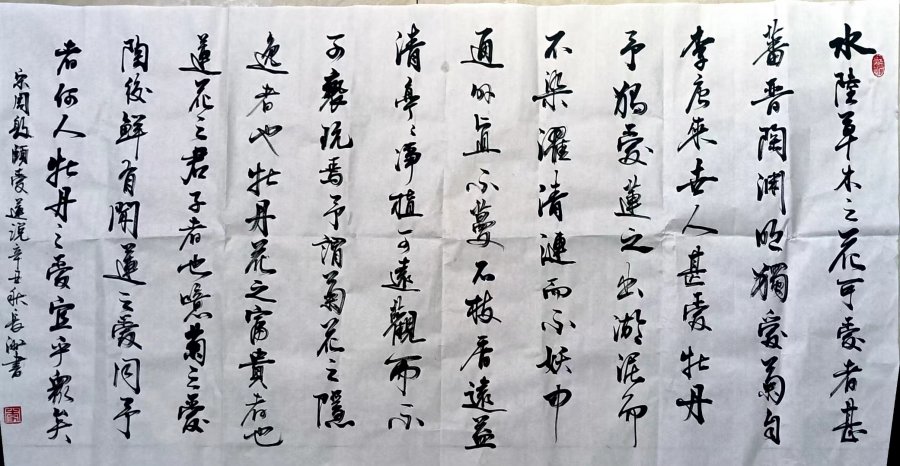 水陸草木之花可愛者甚
蕃晋陶渊明獨愛菊自
李唐來世人甚愛牡丹
予独愛蓮之出淤泥而
不染濯清漣而不妖中
通外直不蔓不枝香遠益
清亭〻淨植可遠觀而不
可褻玩焉予謂菊花之隱
逸者也牡丹花之富貴者也
蓮花之君子者也噫菊之愛
陶後鮮有聞蓮之愛同予
者何人牡丹之愛宜乎衆矣
宋周敦頤愛蓮說辛丑秋長書